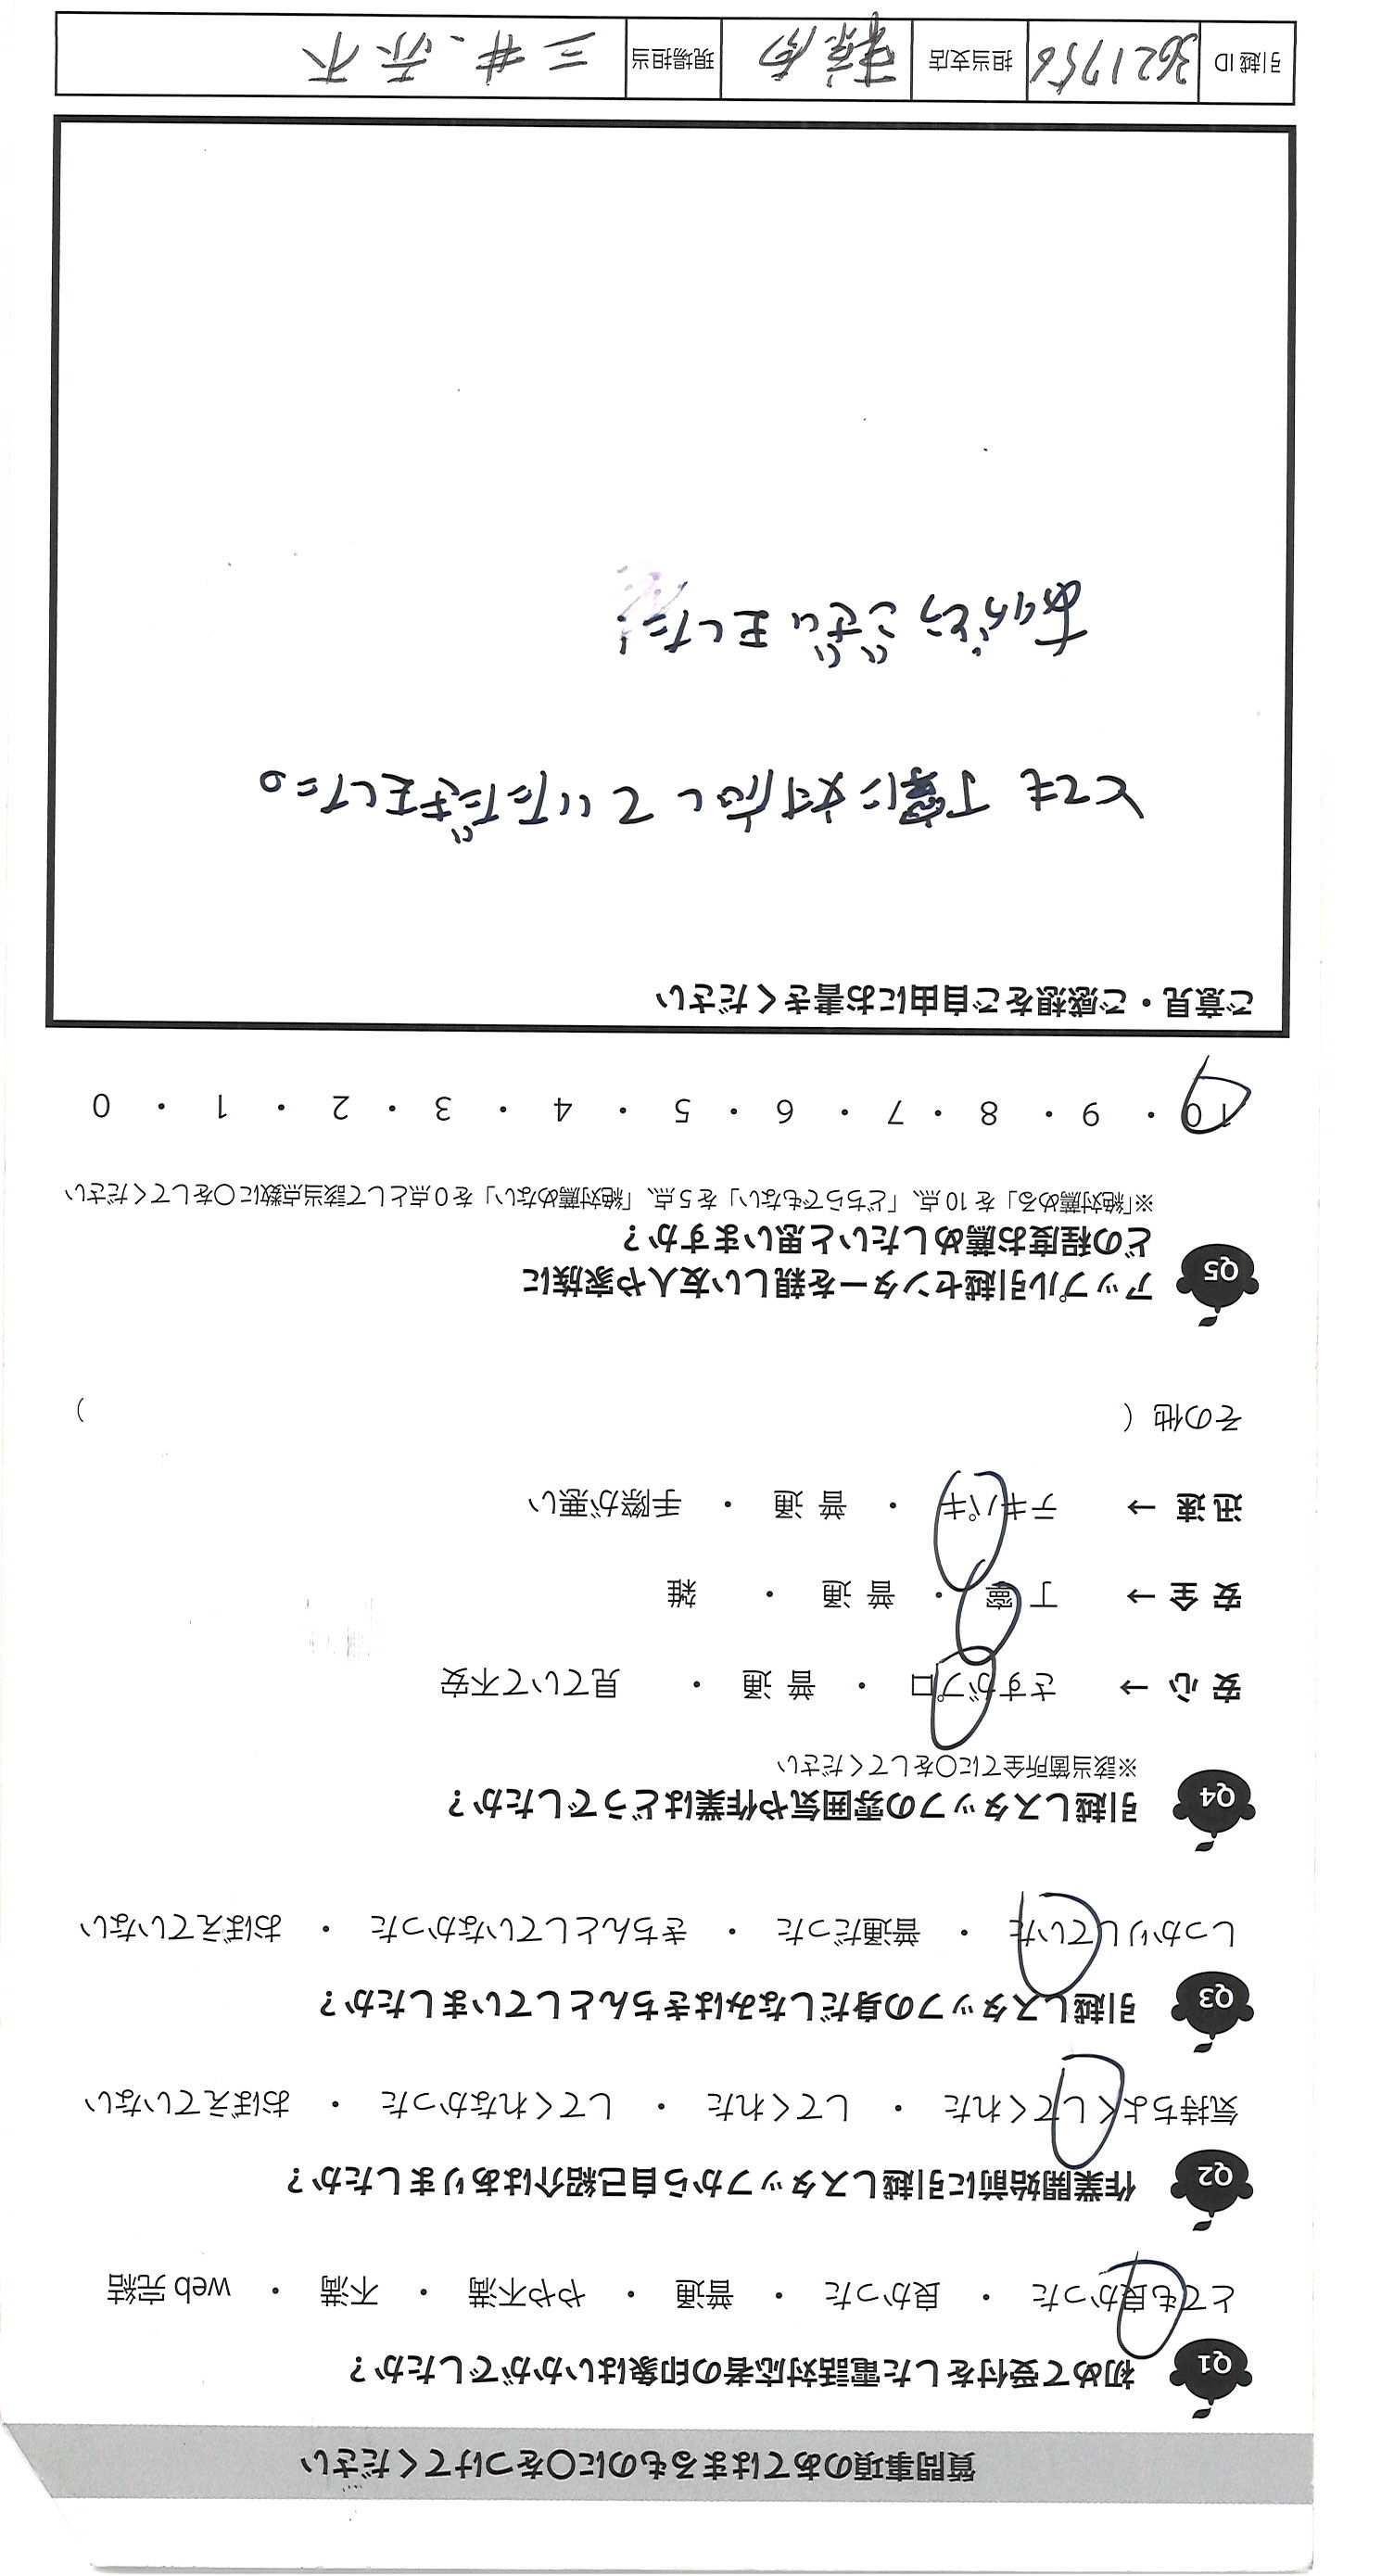 質問事項のあてはまるものに〇をつけてください
Q1 初めて受付をした電話対応者の印象はいかがでしたか？
とても良かった ・ 良かった ・ 普通 ・ やや不満 ・ 不満 ・ web 完結
Q2 作業開始前に引越しスタッフから自己紹介はありましたか？
気持ちよくしてくれた ・ してくれた ・ してくれなかった ・ おぼえていない
Q3 引越しスタッフの身だしなみはきちんとしていましたか？
しっかりしていた ・ 普通だった ・ きちんとしていなかった ・ おぼえていない
Q4 引越しスタッフの雰囲気や作業はどうでしたか？
※該当箇所全てに〇をしてください
安 心 → さすがプロ ・ 普 通 ・ 見ていて不安
安 全 → 丁 寧 ・ 普 通 ・ 雑
迅 速 → テキパキ ・ 普 通 ・ 手際が悪い
その他（ ）
Q5 アップル引越センターを親しい友人や家族に
どの程度お薦めしたいと思いますか？
※「絶対薦める」を 10 点、「どちらでもない」を 5 点、「絶対薦めない」を 0 点として該当点数に〇をしてください
10 ・ 9 ・ 8 ・ 7 ・ 6 ・ 5 ・ 4 ・ 3 ・ 2 ・ 1 ・ 0
ご意見・ご感想をご自由にお書きください
とても丁寧に対応していただきました。
ありがとうございました!
引越 ID 3621756 担当支店 現場担当 三井、赤木